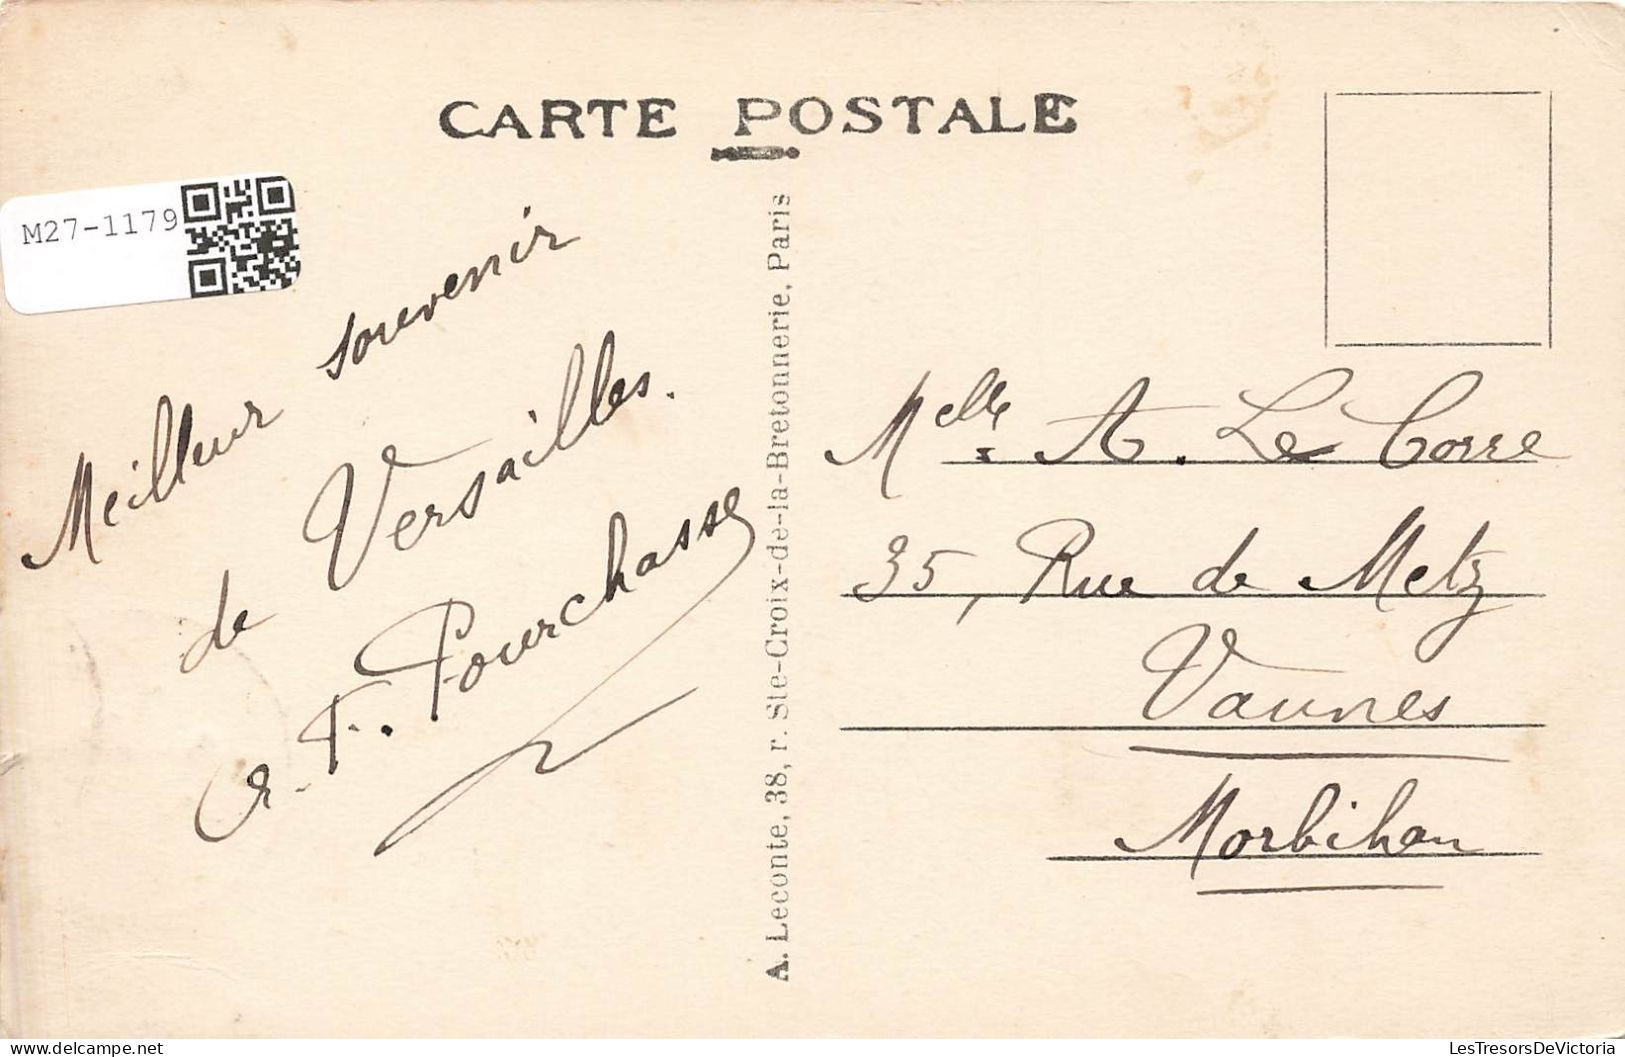 CARTE POSTALE
M27-1179
Meilleur souvenir
de Versailles.
F. Pourchasse
A. Leconte, 38, r. Ste-Croix-de-la-Bretonnerie, Paris
Melle A. Le Corre
35, Rue de Metz
Vannes
Morbihan
LesTresorsDeVictoria